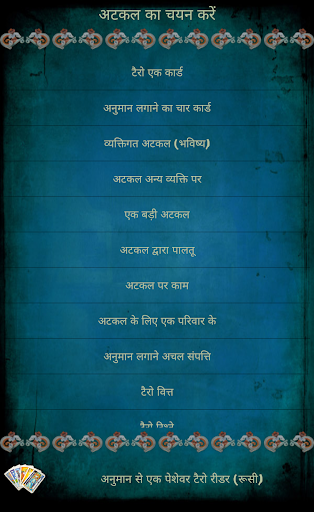 अटकल का चयन करें
टैरो एक कार्ड
अनुमान लगाने का चार कार्ड
व्यक्तिगत अटकल (भविष्य)
अटकल अन्य व्यक्ति पर
एक बड़ी अटकल
अटकल द्वारा पालतू
अटकल पर काम
अटकल के लिए एक परिवार के
अनुमान लगाने अचल संपत्ति
टैरो वित्त
टैरो
अनुमान से एक पेशेवर टैरो रीडर (रूसी)